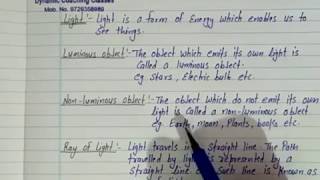 Dynamic Coaching Classes
Mob. No. 9729358989
Light :- Light is a form of Energy which enables us to
See things.
Luminous object :- The object which emits its own light is
Called a luminous object.
eg Stars, Electric bulb etc.
Non-luminous object :- The object which do not emit its own
light is Called a non-luminous object
eg Earth, moon, Plants, books etc.
Ray of light :- Light travels in Straight line The Path
travelled by light is represented by a
Straight line Such line is Known as